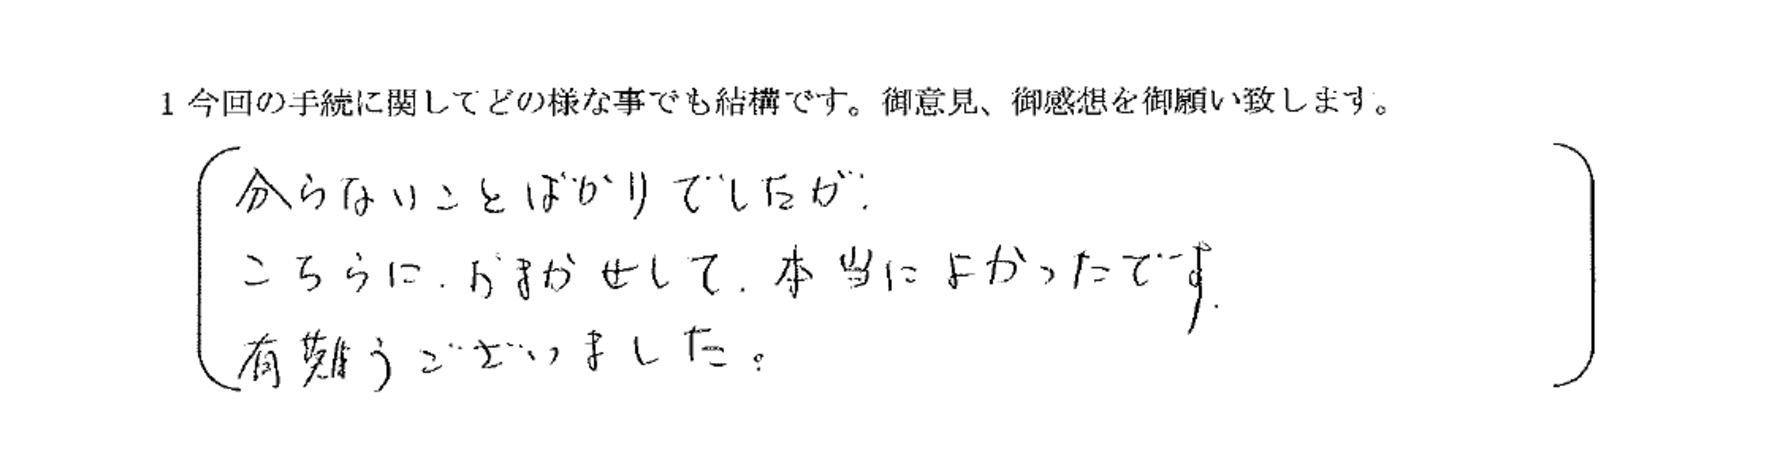 1 今回の手続に関してどの様な事でも結構です。御意見、御感想を御願い致します。
分らないことばかりでしたが、
こちらに、おまかせして、本当によかったです。
有難うございました。